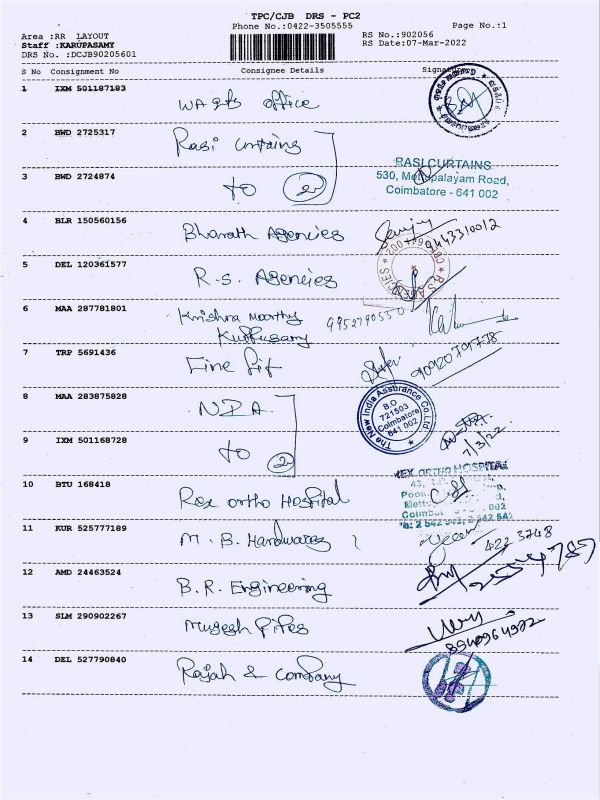 TPC/CJB DRS - PC2
Phone No.:0422-3505555 Page No.:1
Area :RR LAYOUT RS No.:902056
Staff :KARUPASAMY RS Date:07-Mar-2022
DRS No. :DCJB90205601
S No Consignment No Consignee Details Signature
1 IXM 501187183 office
2 BWD 2725317 Rasi Curtains
RASI CURTAINS
3 BWD 2724874 to 2
530, Mettupalayam Road,
Coimbatore - 641 002
4 BLR 150560156 Bharath Agencies 9443310012
5 DEL 120361577 R.S. Agencies
RS AGENCIES
6 MAA 287781801 Krishna Moorthy 9952790550
Kuppusamy
7 TRP 5691436 Fine Fit
8 MAA 283875828 NIA
The New India Assurance Co.Ltd.
B.O
721503
Coimbatore
641 002
9 IXM 501168728 to 2 7/3/22
10 BTU 168418 Rex Ortho Hospital
REX ORTHO HOSPITAL
11 KUR 525777189 M. B. Hardwares
12 AMD 24463524 B.R. Engineering
13 SLM 290902267 Mugesh Pipes
14 DEL 527790840 Rajah & Company